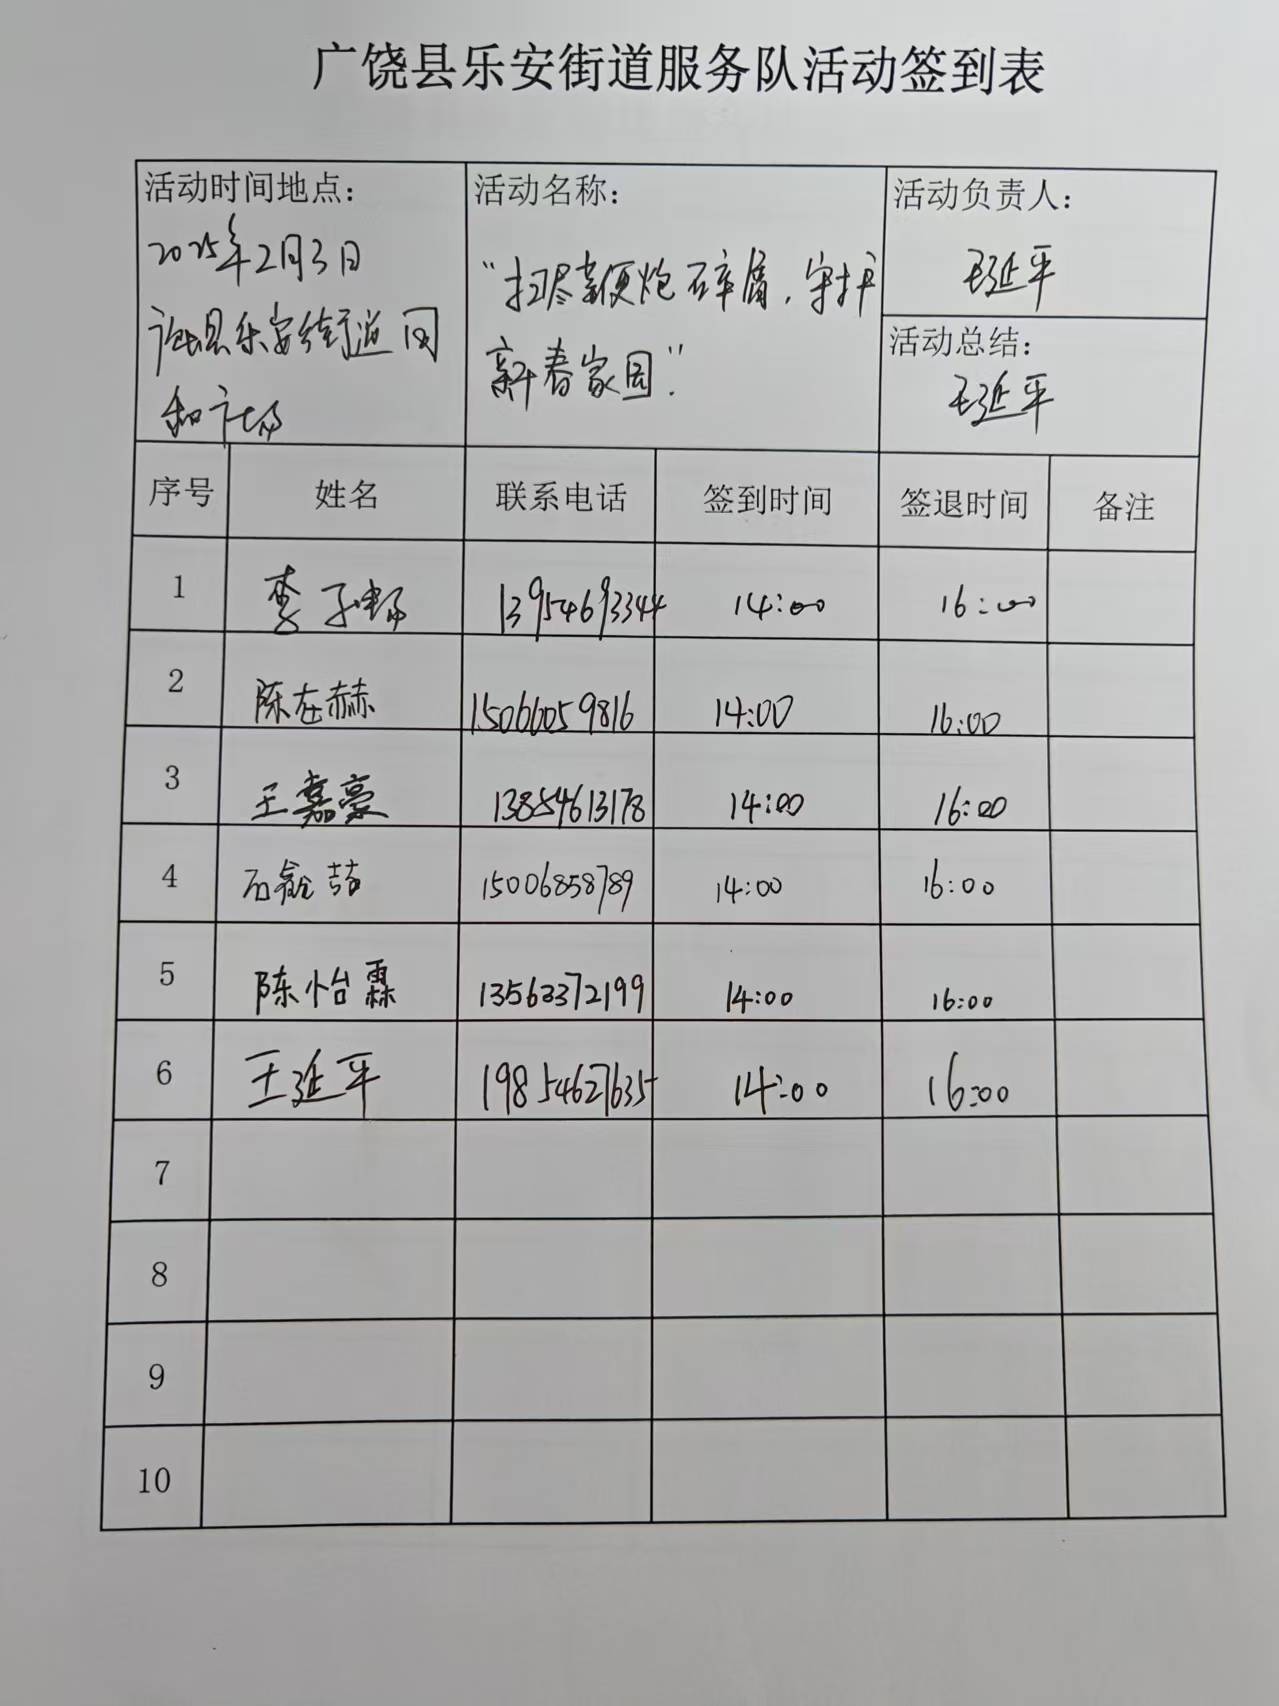 广饶县乐安街道服务队活动签到表
活动时间地点: 活动名称: 活动负责人:
2025年2月3日
县乐安街道同
和
"扫尽鞭炮碎屑,守护
新春家园"
王延平
活动总结:
王延平
序号 姓名 联系电话 签到时间 签退时间 备注
1 李子 13954693344 14:00 16:00
2 陈在赫 15066059816 14:00 16:00
3 王嘉豪 13854613178 14:00 16:00
4 石 喆 15006858789 14:00 16:00
5 陈怡霖 13563372199 14:00 16:00
6 王延平 19854627635 14:00 16:00
7
8
9
10